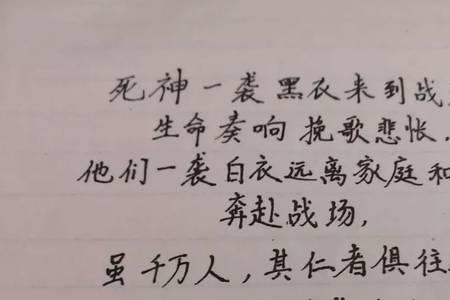 死神一袭黑衣来到战
生命奏响 挽歌悲怅,
他们一袭白衣远离家庭和
奔赴战场,
虽千万人,其仁者俱往